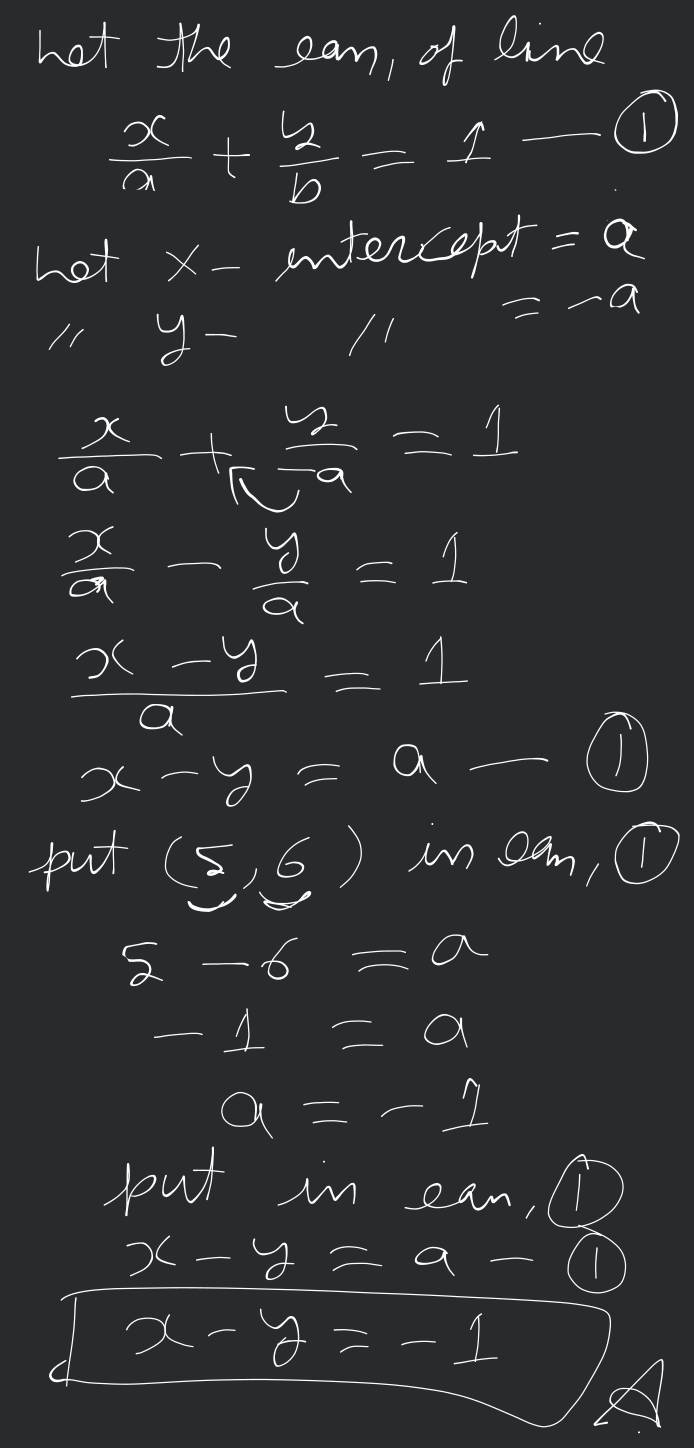 Let the eqn, of line
x/a + y/b = 1 — ①
Let x- intercept = a
〃 y- 〃 = -a
x/a + y/-a = 1
x/a - y/a = 1
x - y/a = 1
x - y = a — ①
put (5, 6) in eqn, ①
5 - 6 = a
- 1 = a
a = - 1
put in eqn, ①
x - y = a - ①
x - y = - 1
A